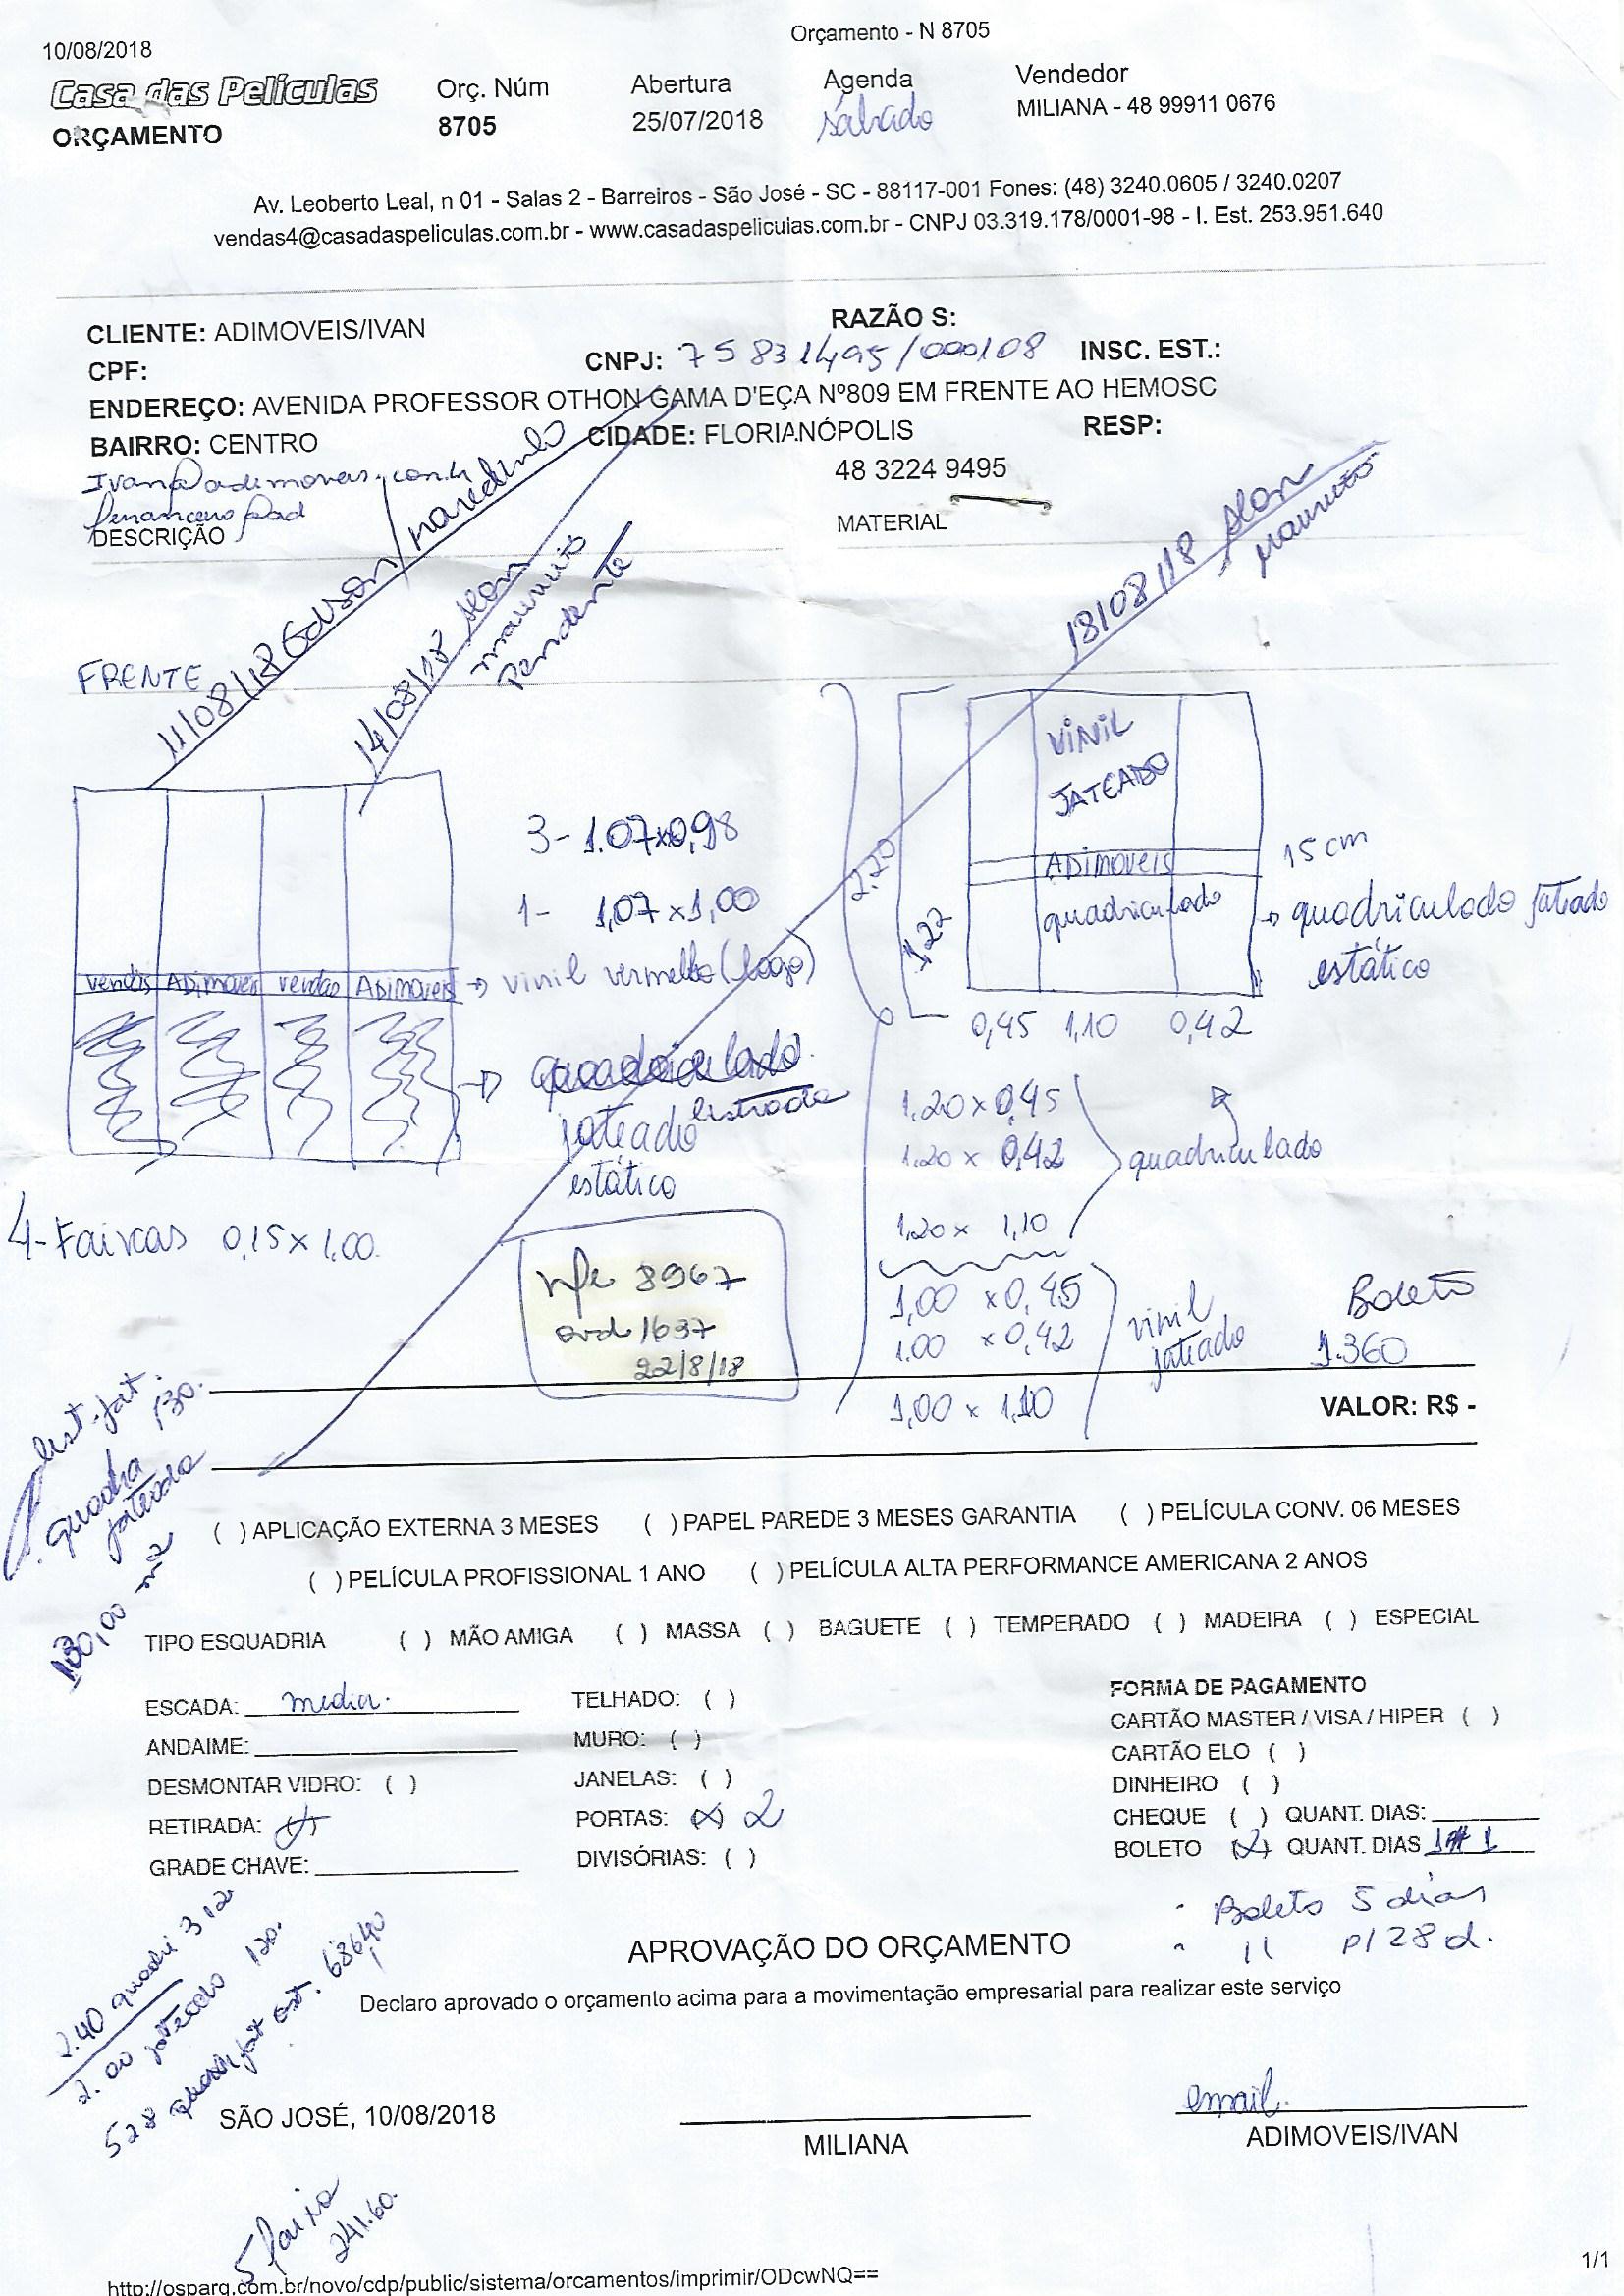 10/08/2018
Orçamento - N 8705
Casa das Películas
ORÇAMENTO
Orç. Núm
8705
Abertura
25/07/2018
Agenda
sábado
Vendedor
MILIANA - 48 99911 0676
Av. Leoberto Leal, n 01 - Salas 2 - Barreiros - São José - SC - 88117-001 Fones: (48) 3240.0605 / 3240.0207
vendas4@casadaspeliculas.com.br - www.casadaspeliculas.com.br - CNPJ 03.319.178/0001-98 - I. Est. 253.951.640
CLIENTE: ADIMOVEIS/IVAN
RAZÃO S:
CPF:
CNPJ: 75831495/000108
INSC. EST.:
ENDEREÇO: AVENIDA PROFESSOR OTHON GAMA D'EÇA Nº809 EM FRENTE AO HEMOSC
BAIRRO: CENTRO
CIDADE: FLORIANÓPOLIS
RESP:
48 3224 9495
DESCRIÇÃO
MATERIAL
FRENTE
11/08/18 Edson
14/08/18
Pendente
18/08/18
VINIL
JATEADO
ADimoveis
quadriculado
15 cm
→ quadriculado jateado
estático
2.20
1,22
0,45 1,10 0,42
3- 1.07x0,98
1- 1,07 x 1,00
vendas ADimoveis vendas ADimoveis → vinil vermelho (logo)
→ quadriculado
listrado
jateado
estático
4- Faixas 0,15 x 1,00.
1.20 x 0,45
1.20 x 0,42
1,20 x 1,10
quadriculado
1,00 x 0,45
1.00 x 0,42
1,00 x 1,10
vinil
jateado
nfe 8967
ord 1637
22/8/18
Boleto
1.360
VALOR: R$ -
list. jat.
130.
quadra
jateado
130,00 m2
( ) APLICAÇÃO EXTERNA 3 MESES ( ) PAPEL PAREDE 3 MESES GARANTIA ( ) PELÍCULA CONV. 06 MESES
( ) PELÍCULA PROFISSIONAL 1 ANO ( ) PELÍCULA ALTA PERFORMANCE AMERICANA 2 ANOS
TIPO ESQUADRIA ( ) MÃO AMIGA ( ) MASSA ( ) BAGUETE ( ) TEMPERADO ( ) MADEIRA ( ) ESPECIAL
ESCADA: media.
ANDAIME:
DESMONTAR VIDRO: ( )
RETIRADA: (x)
GRADE CHAVE:
TELHADO: ( )
MURO: ( )
JANELAS: ( )
PORTAS: (x) 2
DIVISÓRIAS: ( )
FORMA DE PAGAMENTO
CARTÃO MASTER / VISA / HIPER ( )
CARTÃO ELO ( )
DINHEIRO ( )
CHEQUE ( ) QUANT. DIAS:
BOLETO (x) QUANT. DIAS
- Boleto 5 dias
- 11 p/ 28 d.
2.40 quadri 312
2.00 jateado 120.
528 quadri jat est. 686,40
5 faixa
241.60.
APROVAÇÃO DO ORÇAMENTO
Declaro aprovado o orçamento acima para a movimentação empresarial para realizar este serviço
SÃO JOSÉ, 10/08/2018
MILIANA
email.
ADIMOVEIS/IVAN
http://osparq.com.br/novo/cdp/public/sistema/orcamentos/imprimir/ODcwNQ==
1/1